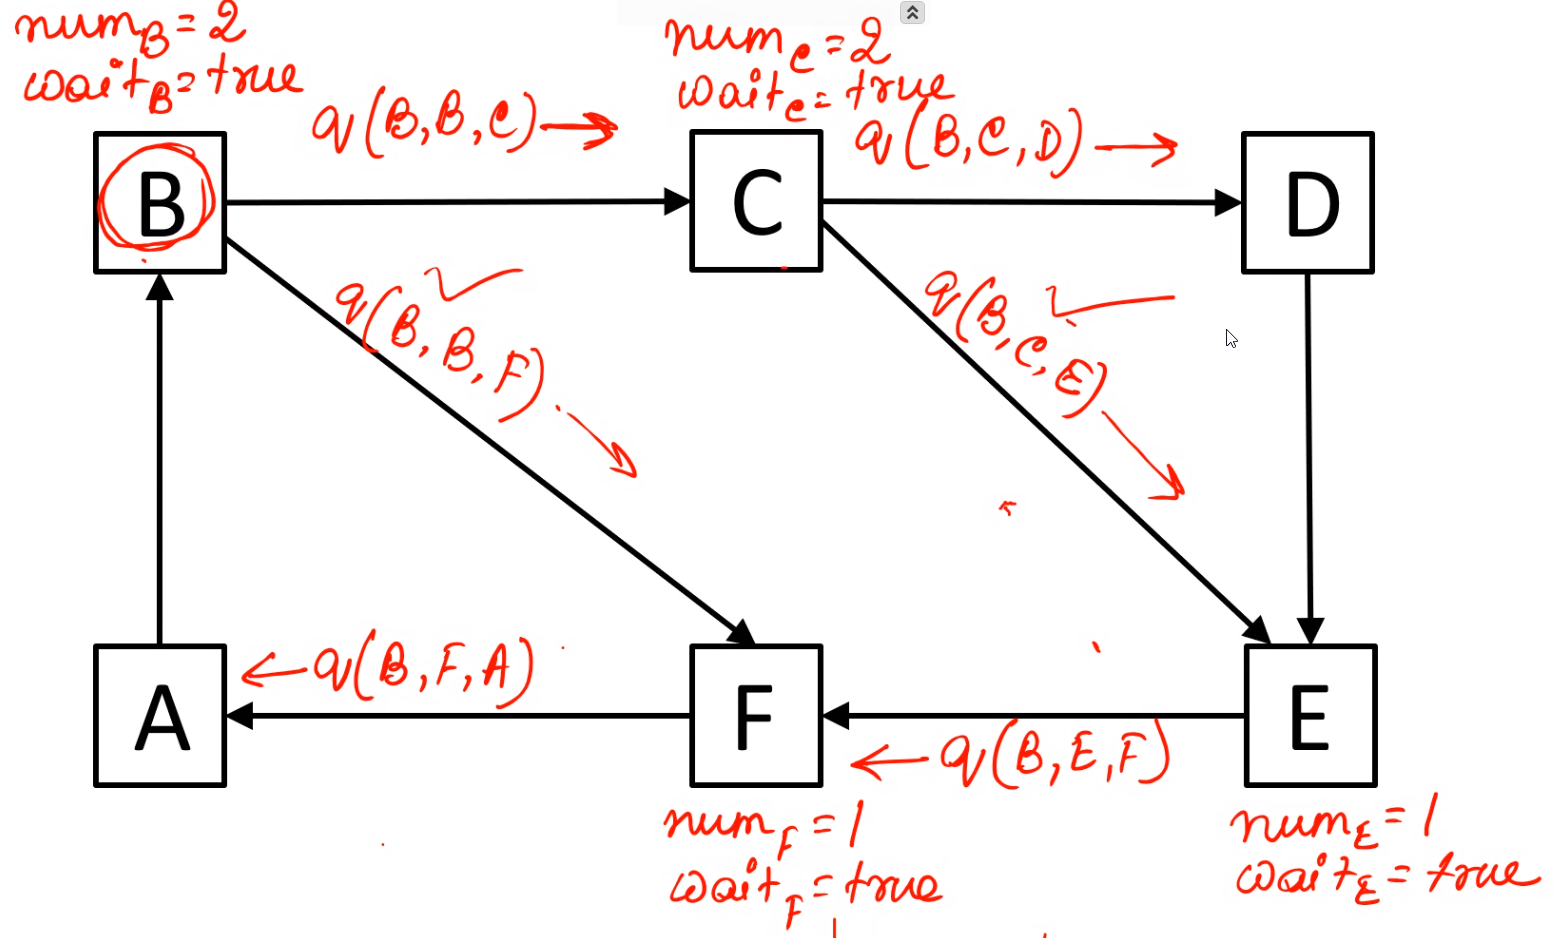 num_B = 2
wait_B = true
num_C = 2
wait_C = true
q(B,B,C)
q(B,C,D)
B
C
D
q(B,B,F)
q(B,C,E)
q(B,F,A)
A
F
E
q(B,E,F)
num_F = 1
wait_F = true
num_E = 1
wait_E = true